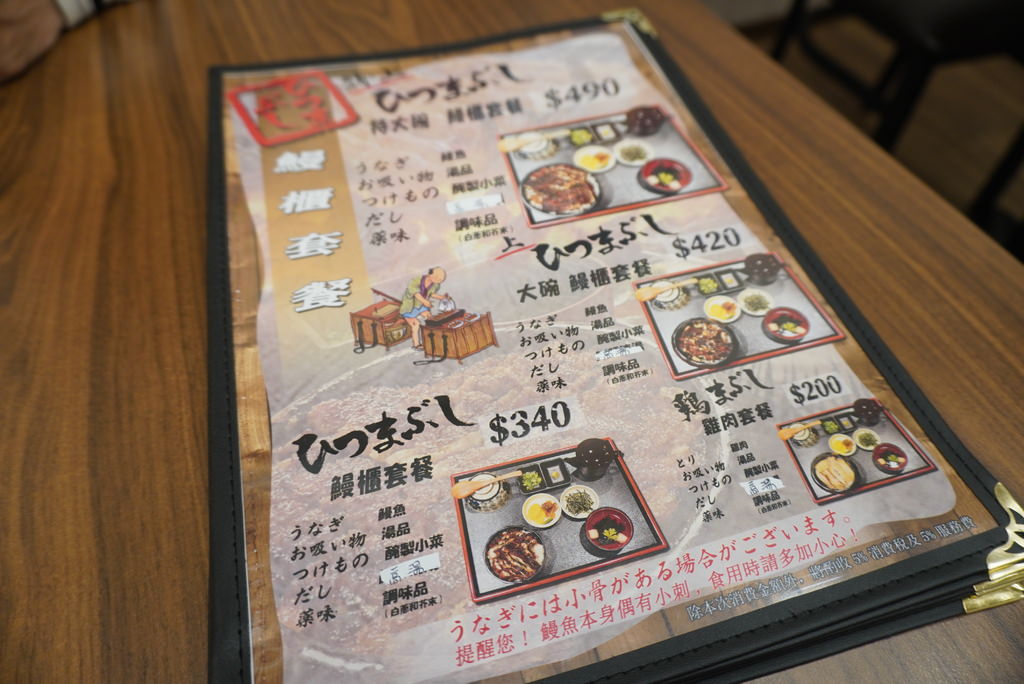 鰻櫃套餐
ひつまぶし
特大碗 鰻櫃套餐 $490
うなぎ 鰻魚
お吸い物 湯品
つけもの 醃製小菜
だし
薬味 調味品
(白蔥和芥末)
上 ひつまぶし
大碗 鰻櫃套餐 $420
うなぎ 鰻魚
お吸い物 湯品
つけもの 醃製小菜
だし
薬味 調味品
(白蔥和芥末)
ひつまぶし $340
鰻櫃套餐
うなぎ 鰻魚
お吸い物 湯品
つけもの 醃製小菜
だし 高湯
薬味 調味品
(白蔥和芥末)
鶏まぶし $200
雞肉套餐
とり 雞肉
お吸い物 湯品
つけもの 醃製小菜
だし 高湯
薬味 調味品
(白蔥和芥末)
うなぎには小骨がある場合がございます。
提醒您！鰻魚本身偶有小刺，食用時請多加小心！
除本次消費金額外，將酌收 5% 消費稅及 5% 服務費